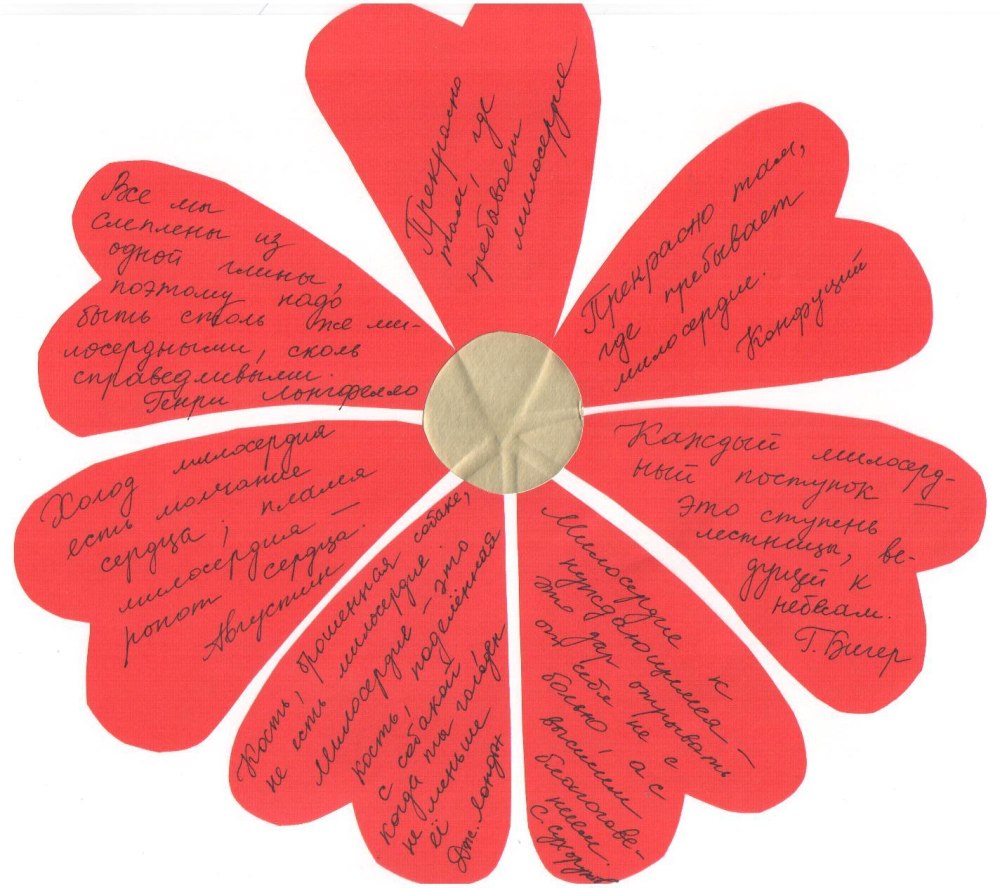 Прекрасно
там, где
пребывает
милосердие
Прекрасно там,
где пребывает
милосердие.
Конфуций
Каждый милосерд-
ный поступок —
это ступень
лестницы, ве-
дущей к
небесам.
Г. Бичер
Милосердие к
нуждающимся —
это дар отрывать
от себя не с
болью, а с
высшим
благогове-
нием.
Кость, брошенная собаке,
не есть милосердие.
Милосердие — это
кость, поделённая
с собакой,
когда ты голоден
не меньше
её
Дж. Лондон
Холод милосердия
есть молчание
сердца; пламя
милосердия —
ропот сердца.
Августин
Все мы
слеплены из
одной глины,
поэтому надо
быть столь же ми-
лосердными, сколь
справедливыми.
Генри Лонгфелло